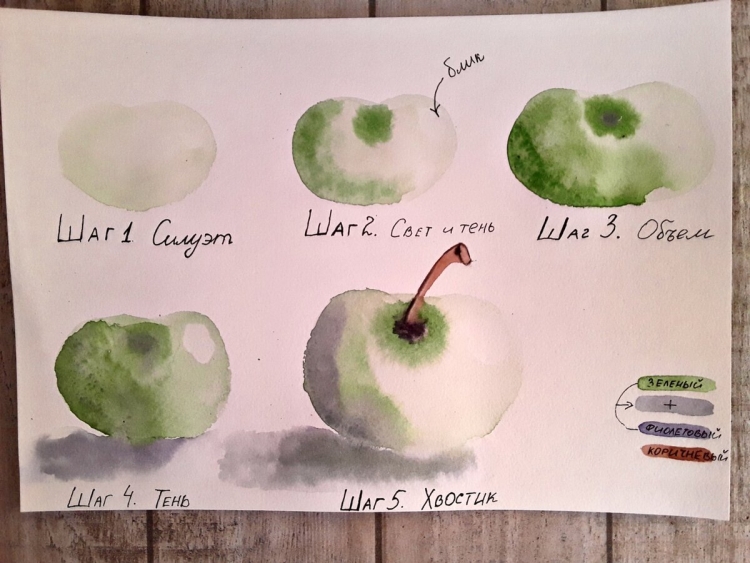 блик
Шаг 1. Силуэт
Шаг 2. Свет и тень
Шаг 3. Объем
Шаг 4. Тень
Шаг 5. Хвостик
ЗЕЛЕНЫЙ
+
ФИОЛЕТОВЫЙ
КОРИЧНЕВЫЙ